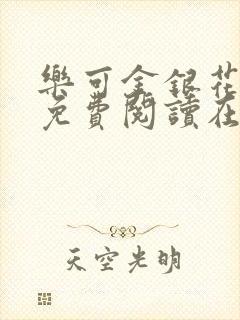 樂可金銀花
免費閱讀在
天空光明